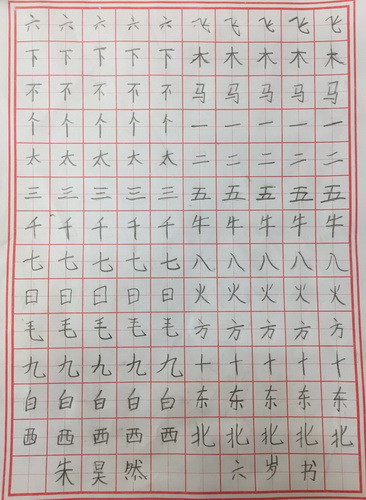 六六六六六飞飞飞飞飞
下下下下下木木木木木
不不不不不马马马马马
个个个个个一一一一一
太太太太太二二二二二
三三三三三五五五五五
千千千千千牛牛牛牛牛
七七七七七八八八八八
日日日日日火火火火火
毛毛毛毛毛方方方方方
九九九九九十十十十十
白白白白白东东东东东
西西西西西北北北北北
朱昊然 六岁书